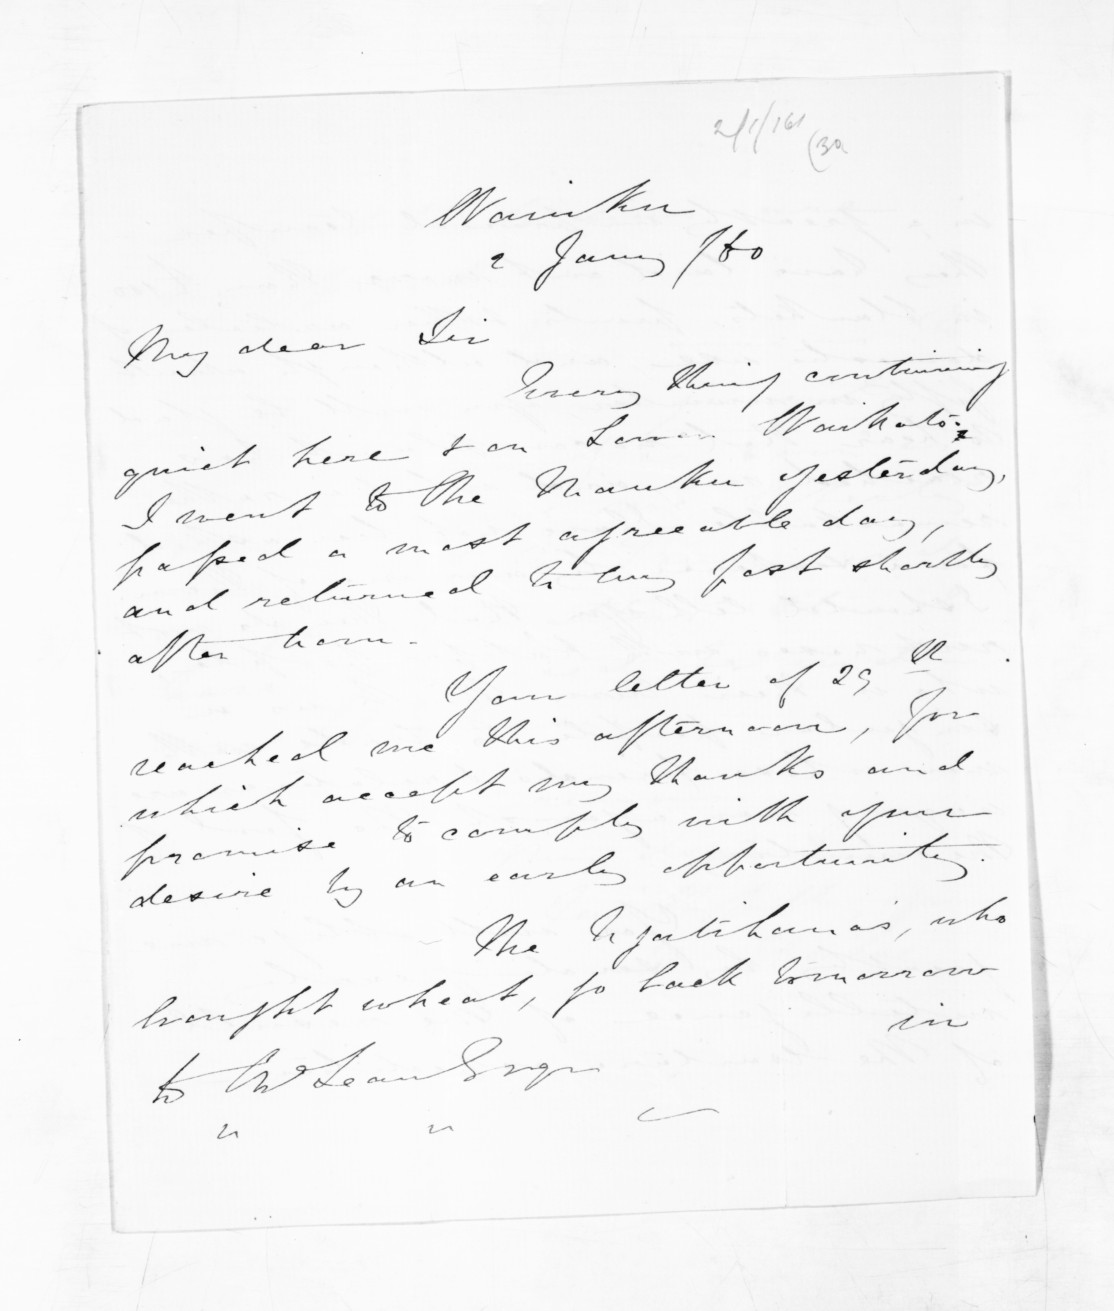 2/1/61
(32
Waiuku
2 Jany /60
My dear Sir
Every thing continuing
quiet here & on Lower Waikato;
I went to the Mauku yesterday,
passed a most agreeable day,
and returned to my post shortly
after
Your letter of 29th
reached me this afternoon, for
which accept my thanks and
promise to comply with your
desire by an early opportunity.
The Ngatihauas, who
bought wheat, go back tomorrow
in
to McLean Esqr
" "